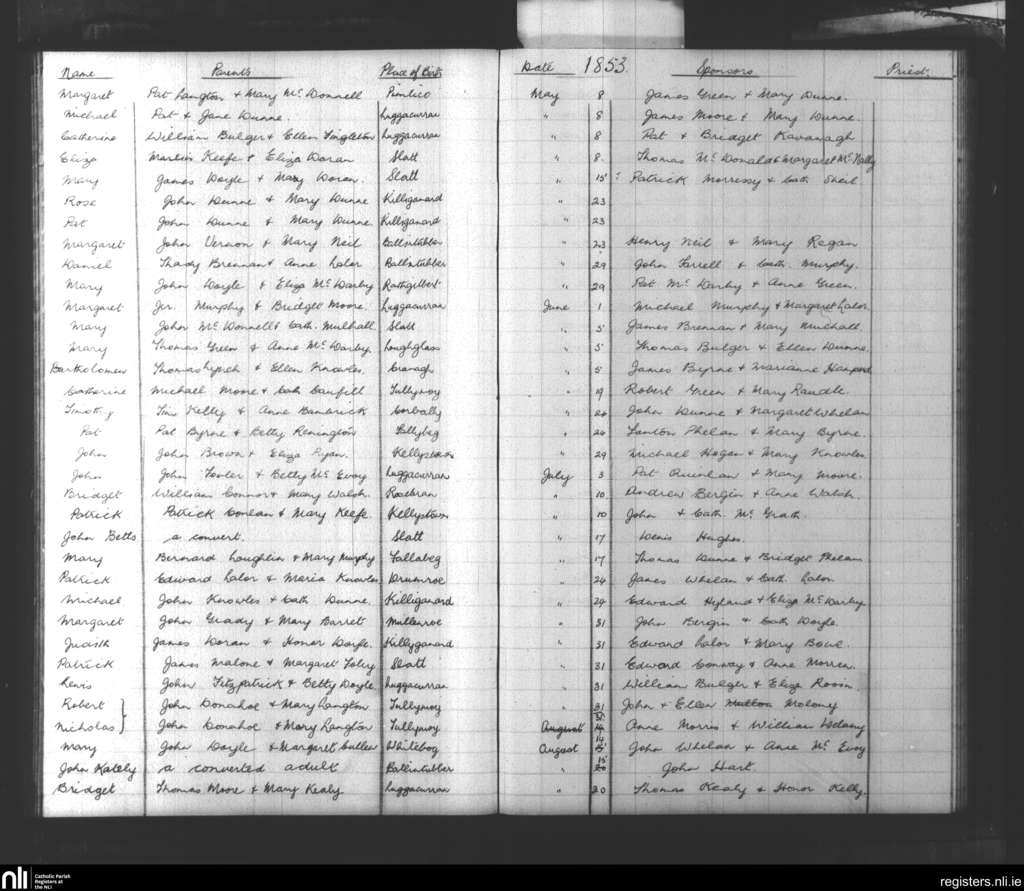 Name Parents Place of Birth Date 1853. Sponsors Priest.
Margaret Pat Langton & Mary McDonnell Pimlico May 8 James Green & Mary Dunne.
Michael Pat & Jane Dunne. Luggacurran " 8 James Moore & Mary Dunne.
Catherine William Bulger & Ellen Singleton Luggacurran " 8 Pat & Bridget Kavanagh
Eliza Martin Keefe & Eliza Doran Slatt " 8. Thomas McDonald & Margaret McNally
Mary James Doyle & Mary Doran. Slatt " 15 Patrick Morressy & Cath Sheil
Rose John Dunne & Mary Dunne Killiganard " 23
Pat John Dunne & Mary Dunne. Killiganard " 23
Margaret John Vernon & Mary Neil Ballintubber " 23 Henry Neil & Mary Regan
Daniel Thady Brennan & Anne Lalor Ballintubber " 29 John Farrell & Cath. Murphy.
Mary John Doyle & Eliza McDarby Rathgilbert " 29 Pat McDarby & Anne Green.
Margaret Jer. Murphy & Bridget Moore. Luggacurran June 1 Michael Murphy & Margaret Lalor.
Mary John McDonnell & Cath. Mulhall. Slatt " 5 James Brennan & Mary Mulhall.
Mary Thomas Green & Anne McDarby Loughglass " 5 Thomas Bulger & Ellen Dunne.
Bartholomew Thomas Lynch & Ellen Knowles. Cravagh " 5 James Byrne & Marianne
Catherine Michael Moore & Cath Canfill Tullymoy " 19 Robert Green & Mary Raudle.
Timothy Tim Kelly & Anne Bambrick Corbally " 26 John Dunne & Margaret Whelan
Pat Pat Byrne & Betty Renington Tallybeg " 26 Lanton Phelan & Mary Byrne.
John John Brown & Eliza Ryan. Kellystown " 29 Michael Hogan & Mary Knowles
John John Fowler & Betty McEvoy Luggacurran July 3 Pat Quinlan & Mary Moore.
Bridget William Connor & Mary Walsh. Rosbran " 10 Andrew Bergin & Anne Walsh.
Patrick Patrick Conlan & Mary Keefe. Kellystown " 10 John & Cath. McGrath.
John Betts a convert. Slatt " 17 Denis Hughes.
Mary Bernard Loughlin & Mary Murphy Tallabeg " 17 Thomas Dunne & Bridget Phelan
Patrick Edward Lalor & Maria Knowles Drumroe " 24 James Whelan & Cath. Lalor.
Michael John Knowles & Cath Dunne. Killiganard " 24 Edward Hyland & Eliza McDarby
Margaret John Grady & Mary Barret Mullenroe " 31 John Bergin & Cath Doyle.
Judith James Doran & Honor Doyle. Killyganard " 31 Edward Lalor & Mary Bowe.
Patrick James Malone & Margaret Foley Slatt " 31 Edward Conway & Anne Morren.
Lewis John Fitzpatrick & Betty Doyle Luggacurran " 31 William Bulger & Eliza
Robert John Donahoe & Mary Langton Tullymoy " 31 John & Ellen Molony
Nicholas } John Donahoe & Mary Langton Tullymoy August 31 Anne Morris & William Delaney
Mary John Doyle & Margaret Cullen Whitebog August 14 John Whelan & Anne McEvoy
John Kately a converted adult Ballintubber " 15 John Hart.
Bridget Thomas Moore & Mary Kealy Luggacurran " 20 Thomas Kealy & Honor Kelly.
nli Catholic Parish Registers at the NLI
registers.nli.ie